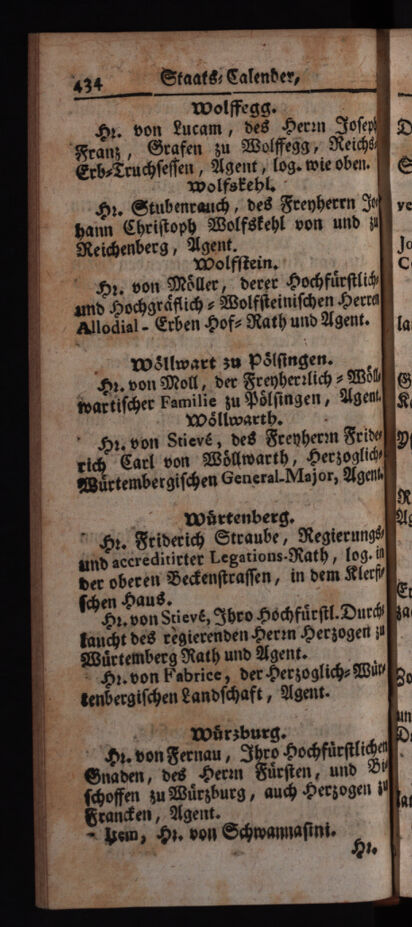 434 Staats-Calender,
Wolffegg.
Hr. von Lucam, des Herrn Joseph
Franz, Grafen zu Wolffegg, Reichs-
Erb-Truchsessen, Agent, log. wie oben.
Wolfskehl.
Hr. Stubenrauch, des Freyherrn Jo-
hann Christoph Wolfskehl von und zu
Reichenberg, Agent.
Wolfstein.
Hr. von Möller, derer Hochfürstlich-
und Hochgräflich-Wolfsteinischen Herren
Allodial-Erben Hof-Rath und Agent.
Wöllwart zu Pölsingen.
Hr. von Moll, der Freyherrlich-Wöll-
wartischer Familie zu Pölsingen, Agent.
Wöllwarth.
Hr. von Stievé, des Freyherrn Fride-
rich Carl von Wöllwarth, Herzoglich-
Würtembergischen General-Major, Agent.
Würtenberg.
Hr. Friderich Straube, Regierungs-
und accreditirter Legations-Rath, log. in
der oberen Beckenstrassen, in dem Klerfi-
schen Haus.
Hr. von Stievé, Ihro Hochfürstl. Durch-
laucht des regierenden Herrn Herzogen zu
Würtemberg Rath und Agent.
Hr. von Fabrice, der Herzoglich-Wür-
tenbergischen Landschaft, Agent.
Würzburg.
Hr. von Fernau, Ihro Hochfürstlichen
Gnaden, des Herrn Fürsten, und Bi-
schoffen zu Würzburg, auch Herzogen in
Francken, Agent.
Item, Hr. von Schwannasini.
Hr.